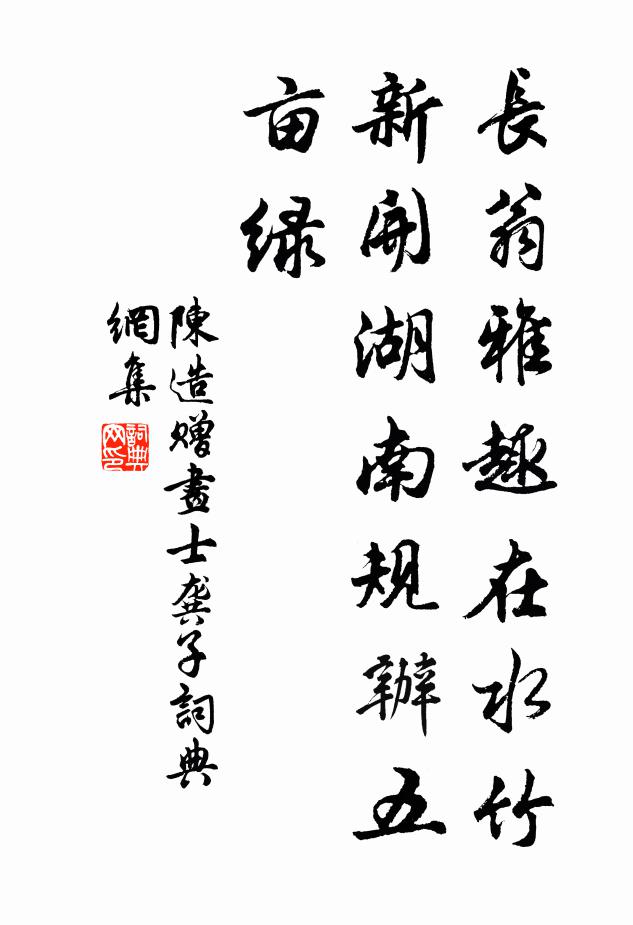 長翁雅趣在水竹
新開湖南規辦五
亩绿
陳造贈畫士龔子詞典
網集
詞典
网印